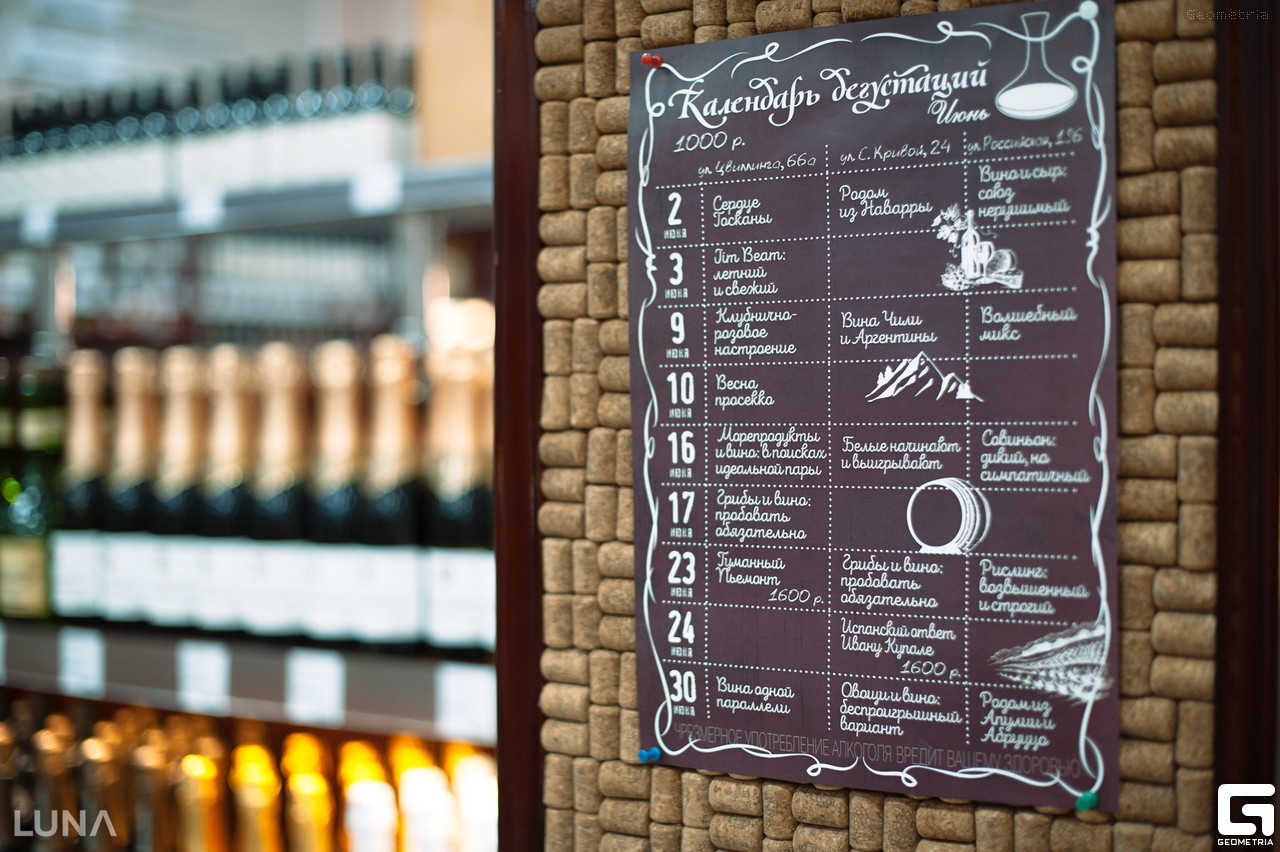 Geometria
Календарь дегустаций
Июнь
1000 р.
ул Цвиллинга, 66а
ул С. Кривой, 24
ул Российская, 196
2 июня
Сердце
Тосканы
Родом
из Наварры
Вино и сыр:
союз
нерушимый
3 июня
Tim Beam:
летний
и свежий
9 июня
Клубнично-
розовое
настроение
Вина Чили
и Аргентины
Волшебный
микс
10 июня
Весна
просекко
16 июня
Морепродукты
и вино: в поисках
идеальной пары
Белые начинают
и выигрывают
Совиньон:
дикий, но
симпатичный
17 июня
Грибы и вино:
пробовать
обязательно
23 июня
Туманный
Пьемонт
1600 р.
Грибы и вино:
пробовать
обязательно
Рислинг:
возвышенный
и строгий
24 июня
Испанский ответ
Ивану Купале
1600 р.
30 июня
Вина одной
параллели
Овощи и вино:
беспроигрышный
вариант
Родом из
Апулии и
Абруццо
ЧРЕЗМЕРНОЕ УПОТРЕБЛЕНИЕ АЛКОГОЛЯ ВРЕДИТ ВАШЕМУ ЗДОРОВЬЮ
LUNA
GEOMETRIA